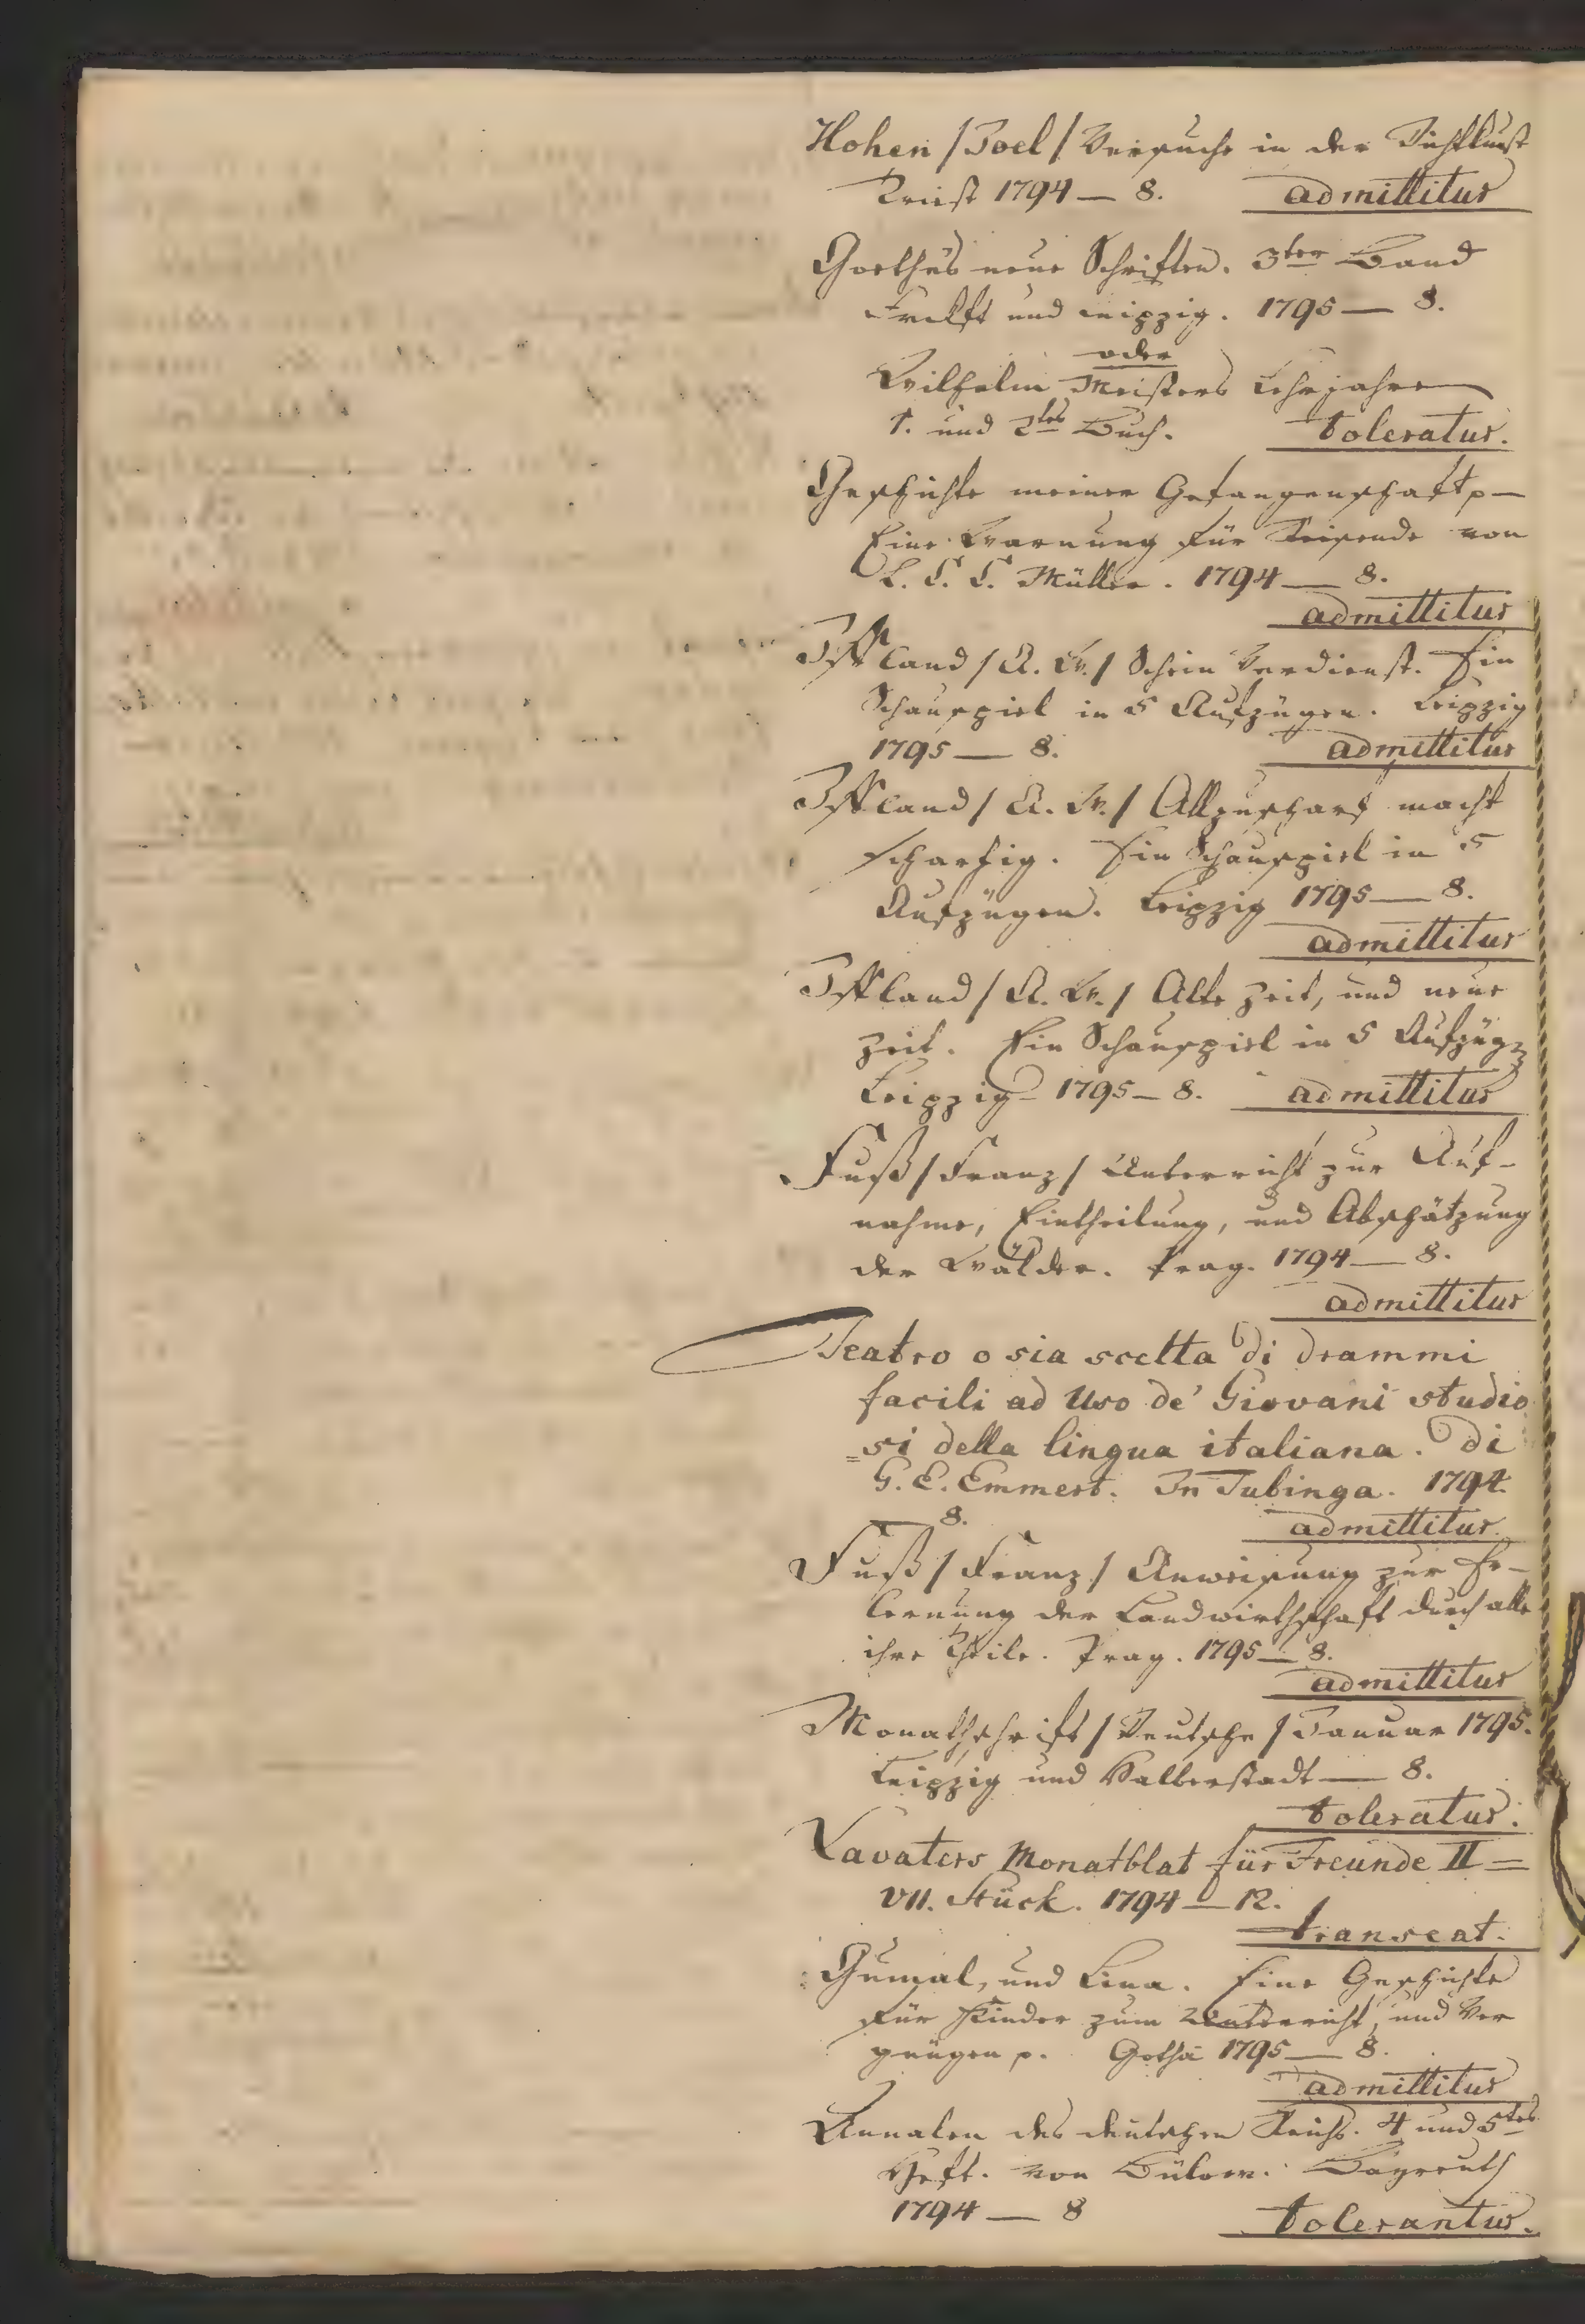 Hohen /Joel/ Versuche in der Dichtkunst
Triest 1794 — 8. admittitur
Goethe's neue Schriften. 3ter Band
Frckft und Leipzig. 1795 — 8.
oder
Wilhelm Meisters Lehrjahre
1. und 2tes Buch. toleratur.
Geschichte meiner Gefangenschaft p —
Eine Warnung für Reisende von
L. C. C. Müller. 1794 — 8.
admittitur
Iffland /A. W./ Schein Verdienst. Ein
Schauspiel in 5 Aufzügen. Leipzig
1795 — 8. admittitur
Iffland /A. W./ Allzuscharf macht
schartig. Ein Schauspiel in 5
Aufzügen. Leipzig 1795 — 8.
admittitur
Iffland /A. W./ Alte Zeit, und neue
Zeit. Ein Schauspiel in 5 Aufzüg
Leipzig 1795 — 8. admittitur
Fuß /Franz/ Unterricht zur Auf-
nahme, Eintheilung, und Abschätzung
der Wälder. Prag. 1794 — 8.
admittitur
Teatro o sia scelta di drammi
facili ad uso de' Giovani studio
=si della lingua italiana. Di
G. E. Emmert. In Tubinga. 1794.
8. admittitur.
Fuß /Franz/ Anweisung zur Er-
lernung der Landwirthschaft durch alle
ihre Theile. Prag. 1795 — 8.
admittitur
Monathschrift /Deutsche/ Januar 1795.
Leipzig und Halberstadt — 8.
toleratur.
Lavaters Monatblat für Freunde II =
VII. Stück. 1794 — 12.
transeat.
Gumal, und Lina. Eine Geschichte
für Kinder zum Unterricht, und Ver
gnügen p. Gotha 1795 — 8.
admittitur
Annalen des deutschen Reichs. 4 und 5tes
Heft. von Bülow. Bayreuth
1794 — 8 tolerantur.